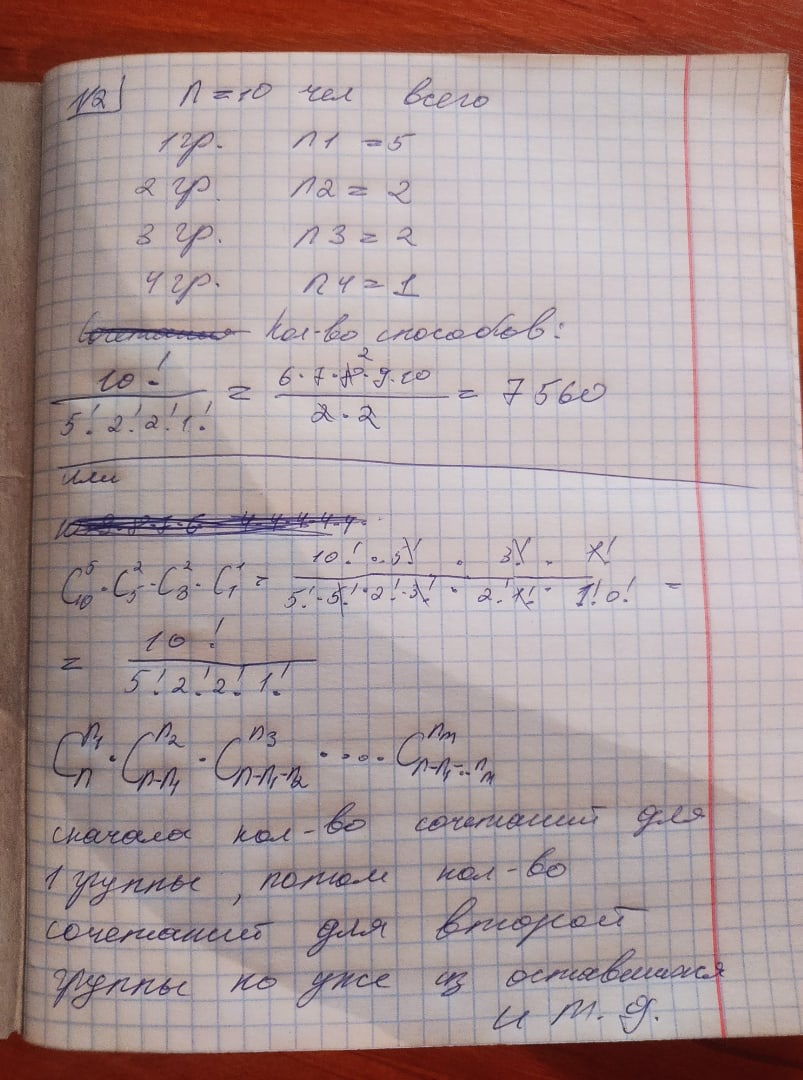 №2 n = 10 чел всего
1 гр. n1 = 5
2 гр. n2 = 2
3 гр. n3 = 2
4 гр. n4 = 1
Кол-во способов:
10! / 5! 2! 2! 1! = 6·7·8·9·10 / 2·2 = 7560
или
C₁₀⁵ · C₅² · C₃² · C₁¹ = 10! · 5! · 3! · 1! / 5! · 5! · 2! · 3! · 2! · 1! · 1! 0! =
= 10! / 5! 2! 2! 1!
C_n^{n1} · C_{n-n1}^{n2} · C_{n-n1-n2}^{n3} · .... C_{n-n1-..nm}^{nm}
сначала кол-во сочетаний для
1 группы, потом кол-во
сочетаний для второй
группы но уже из оставшихся
и т. д.